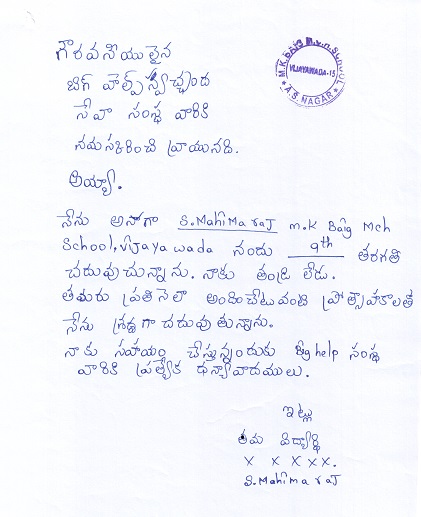 గౌరవనీయులైన
బిగ్ హెల్ప్ స్వచ్ఛంద
సేవా సంస్థ వారికి
నమస్కరించి వ్రాయునది.
అయ్యా.
M.K. BAIG M.C.H. SCHOOL
VIJAYAWADA-15
★ A.S. NAGAR ★
నేను అనగా S.Mahima raj m.k Baig Mch
School, Vijaya wada నందు 9th తరగతి
చదువుచున్నాను. నాకు తండ్రి లేడు.
తమరు ప్రతినెలా అందించేటువంటి ప్రోత్సాహకాలతో
నేను శ్రద్ధగా చదువుతున్నాను.
నాకు సహాయం చేస్తున్నందుకు Big help సంస్థ
వారికి ప్రత్యేక ధన్యావాదములు.
ఇట్లు
తమ విద్యార్థి
x x x x x.
S.Mahima raj